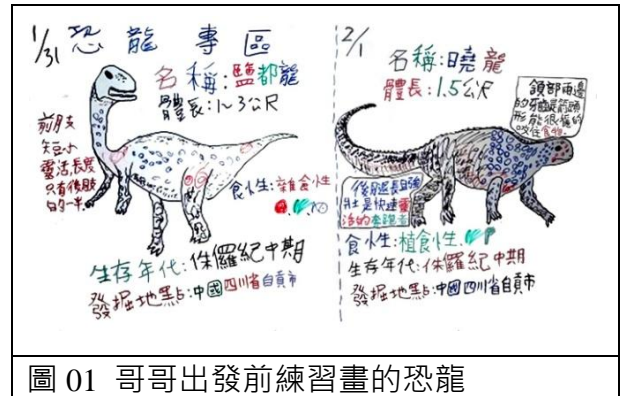 1/31 恐龍專區
名稱:鹽都龍
體長:1~3公尺
前肢
短小
靈活,長度
只有後肢
的一半。
食性:雜食性
生存年代:侏儸紀中期
發掘地點:中國四川省自貢市
2/1
名稱:曉龍
體長:1.5公尺
頜部兩邊
的牙齒是箭頭
形能很穩的
咬住食物。
後肢長且強
壯是快速靈
活的奔跑者
食性:植食性
生存年代:侏儸紀中期
發掘地點:中國四川省自貢市
圖 01 哥哥出發前練習畫的恐龍